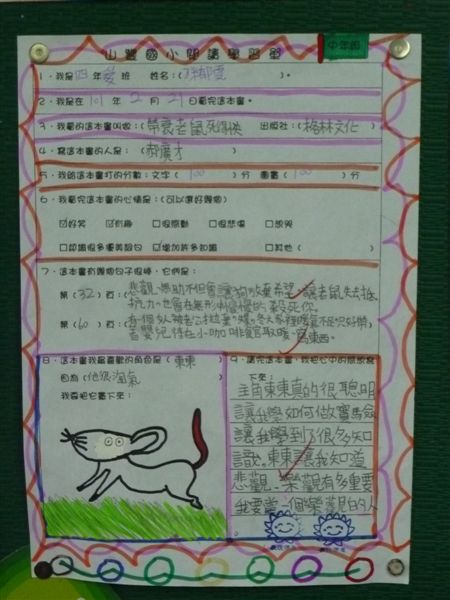 山豐國小閱讀學習單
中年級
1、我是四年愛班 姓名：(
2、我是在101年2月21日看完這本書。
3、我看的這本書叫做：(帶衰老鼠死得快 出版社：(格林文化)
4、寫這本書的人是：(郝廣才)
5、我給這本書打的分數：文字(100)分 圖畫(100)分
6、我看完這本書的心情是：(可以選好幾個)
☑好笑 ☑有趣 □很感動 □很悲傷 □想哭
□認識很多優美詞句 ☑增加許多知識 □其他( )
7、這本書有幾個句子很棒，它們是：
第(32)頁：(悲觀、無助不但會讓狗放棄希望，讓老鼠失去抵
抗力，也會在無形中慢慢的殺死你。
第(60)頁：(
當嬰兒待在小咖啡館取暖、寫東西。
8、這本書我最喜歡的角色是(東東)
因為(他很淘氣)
我要把它畫下來：
9、讀完這本書，我把心中的感想寫
下來：
主角東東真的很聰明
讓我學如何做實驗
讓我學到了很多知
識。東東讓我知道
悲觀、樂觀有多重要
我要當一個樂觀的人